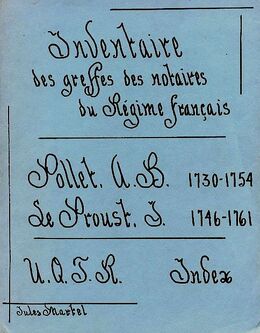 Inventaire
des greffes des notaires
du Régime français
Pollet, A.B. 1730-1754
Le Proust, J. 1746-1761
U.Q.T.R. Index
Jules Martel